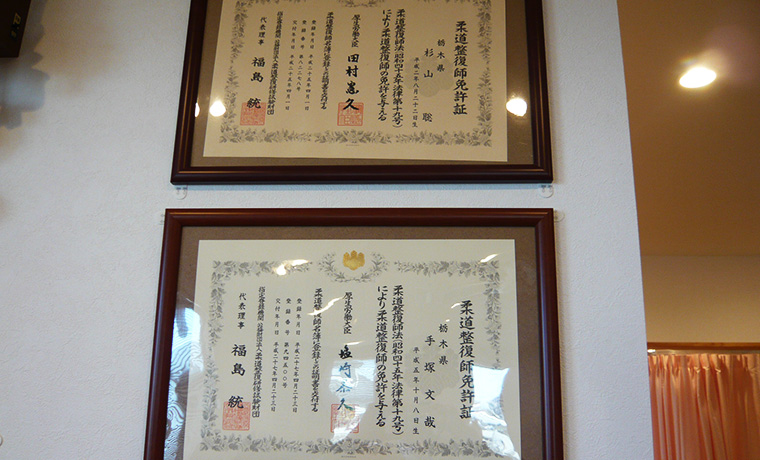 柔道整復師免許証
栃木県
杉山 聡
平成二年八月二十二日生
柔道整復師法(昭和四十五年法律第十九号)
により柔道整復師の免許を与える
厚生労働大臣 田村憲久
柔道整復師名簿に登録との証明書を交付する
登録年月日 平成二十五年四月一日
交付年月日 平成二十五年四月一日
指定登録機関 公益財団法人柔道整復研修試験財団
代表理事 福島 統
柔道整復師免許証
栃木県
手塚文哉
平成五年十月八日生
柔道整復師法(昭和四十五年法律第十九号)
により柔道整復師の免許を与える
厚生労働大臣 塩崎恭久
柔道整復師名簿に登録との証明書を交付する
登録年月日 平成二十七年四月二十三日
登録番号
交付年月日 平成二十七年四月二十三日
指定登録機関 公益財団法人柔道整復研修試験財団
代表理事 福島 統